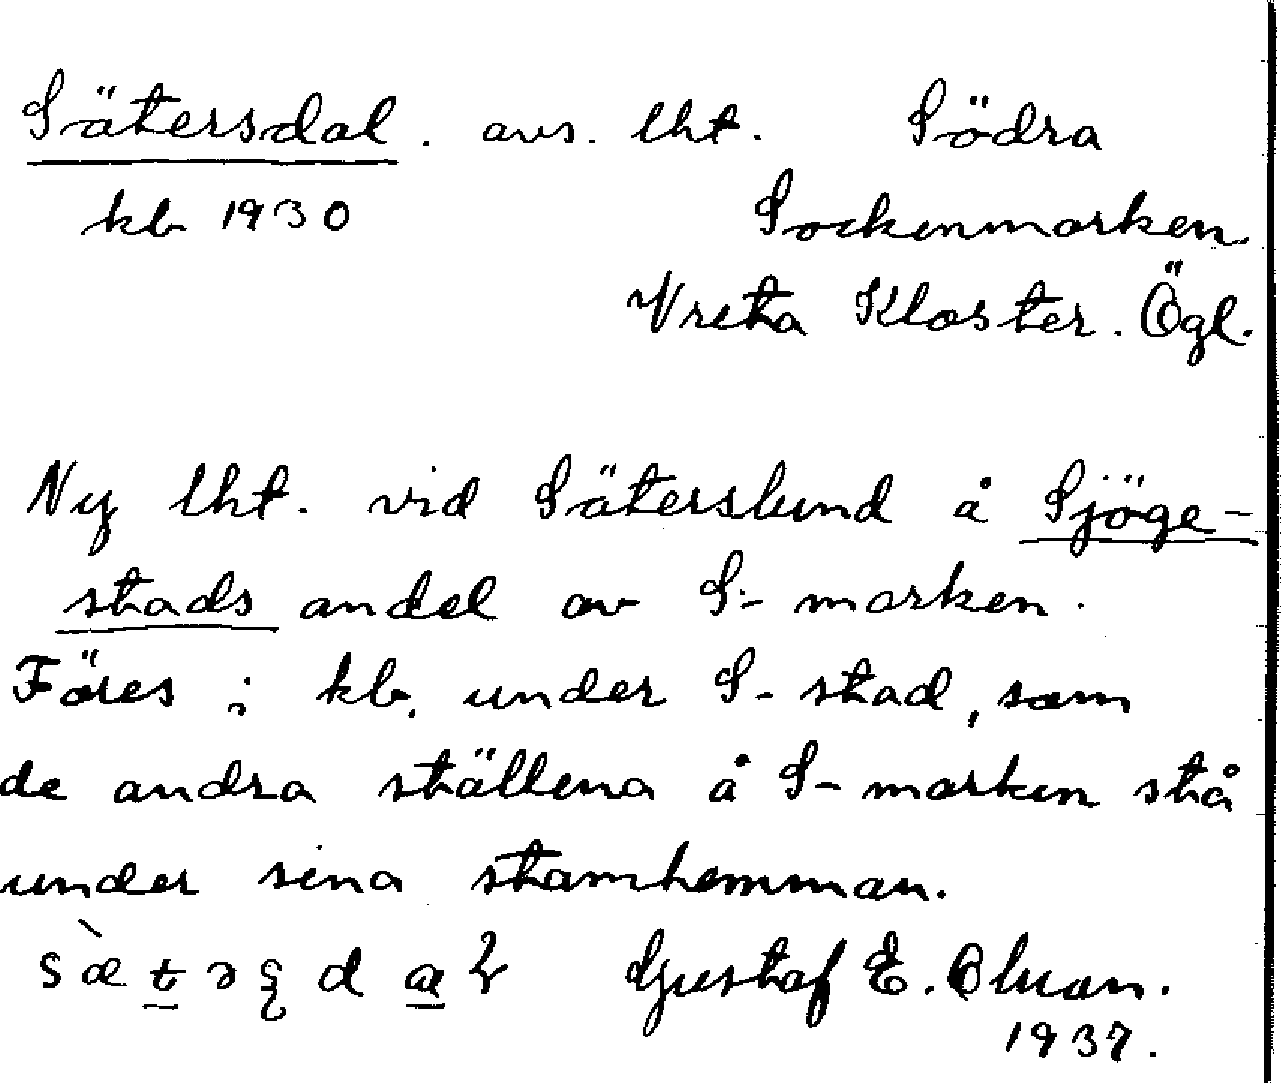 Sätersdal. avs. lht. Södra
kb 1930 Sockenmarken.
Vreta Kloster. Ögl.
Ny lht. vid Säterslund å Sjöge-
stads andel av S:- marken.
Föres i kb. under S- stad, som
de andra ställena å S- marken stå
under sina stamhemman.
Gustaf E. Olman.
1937.